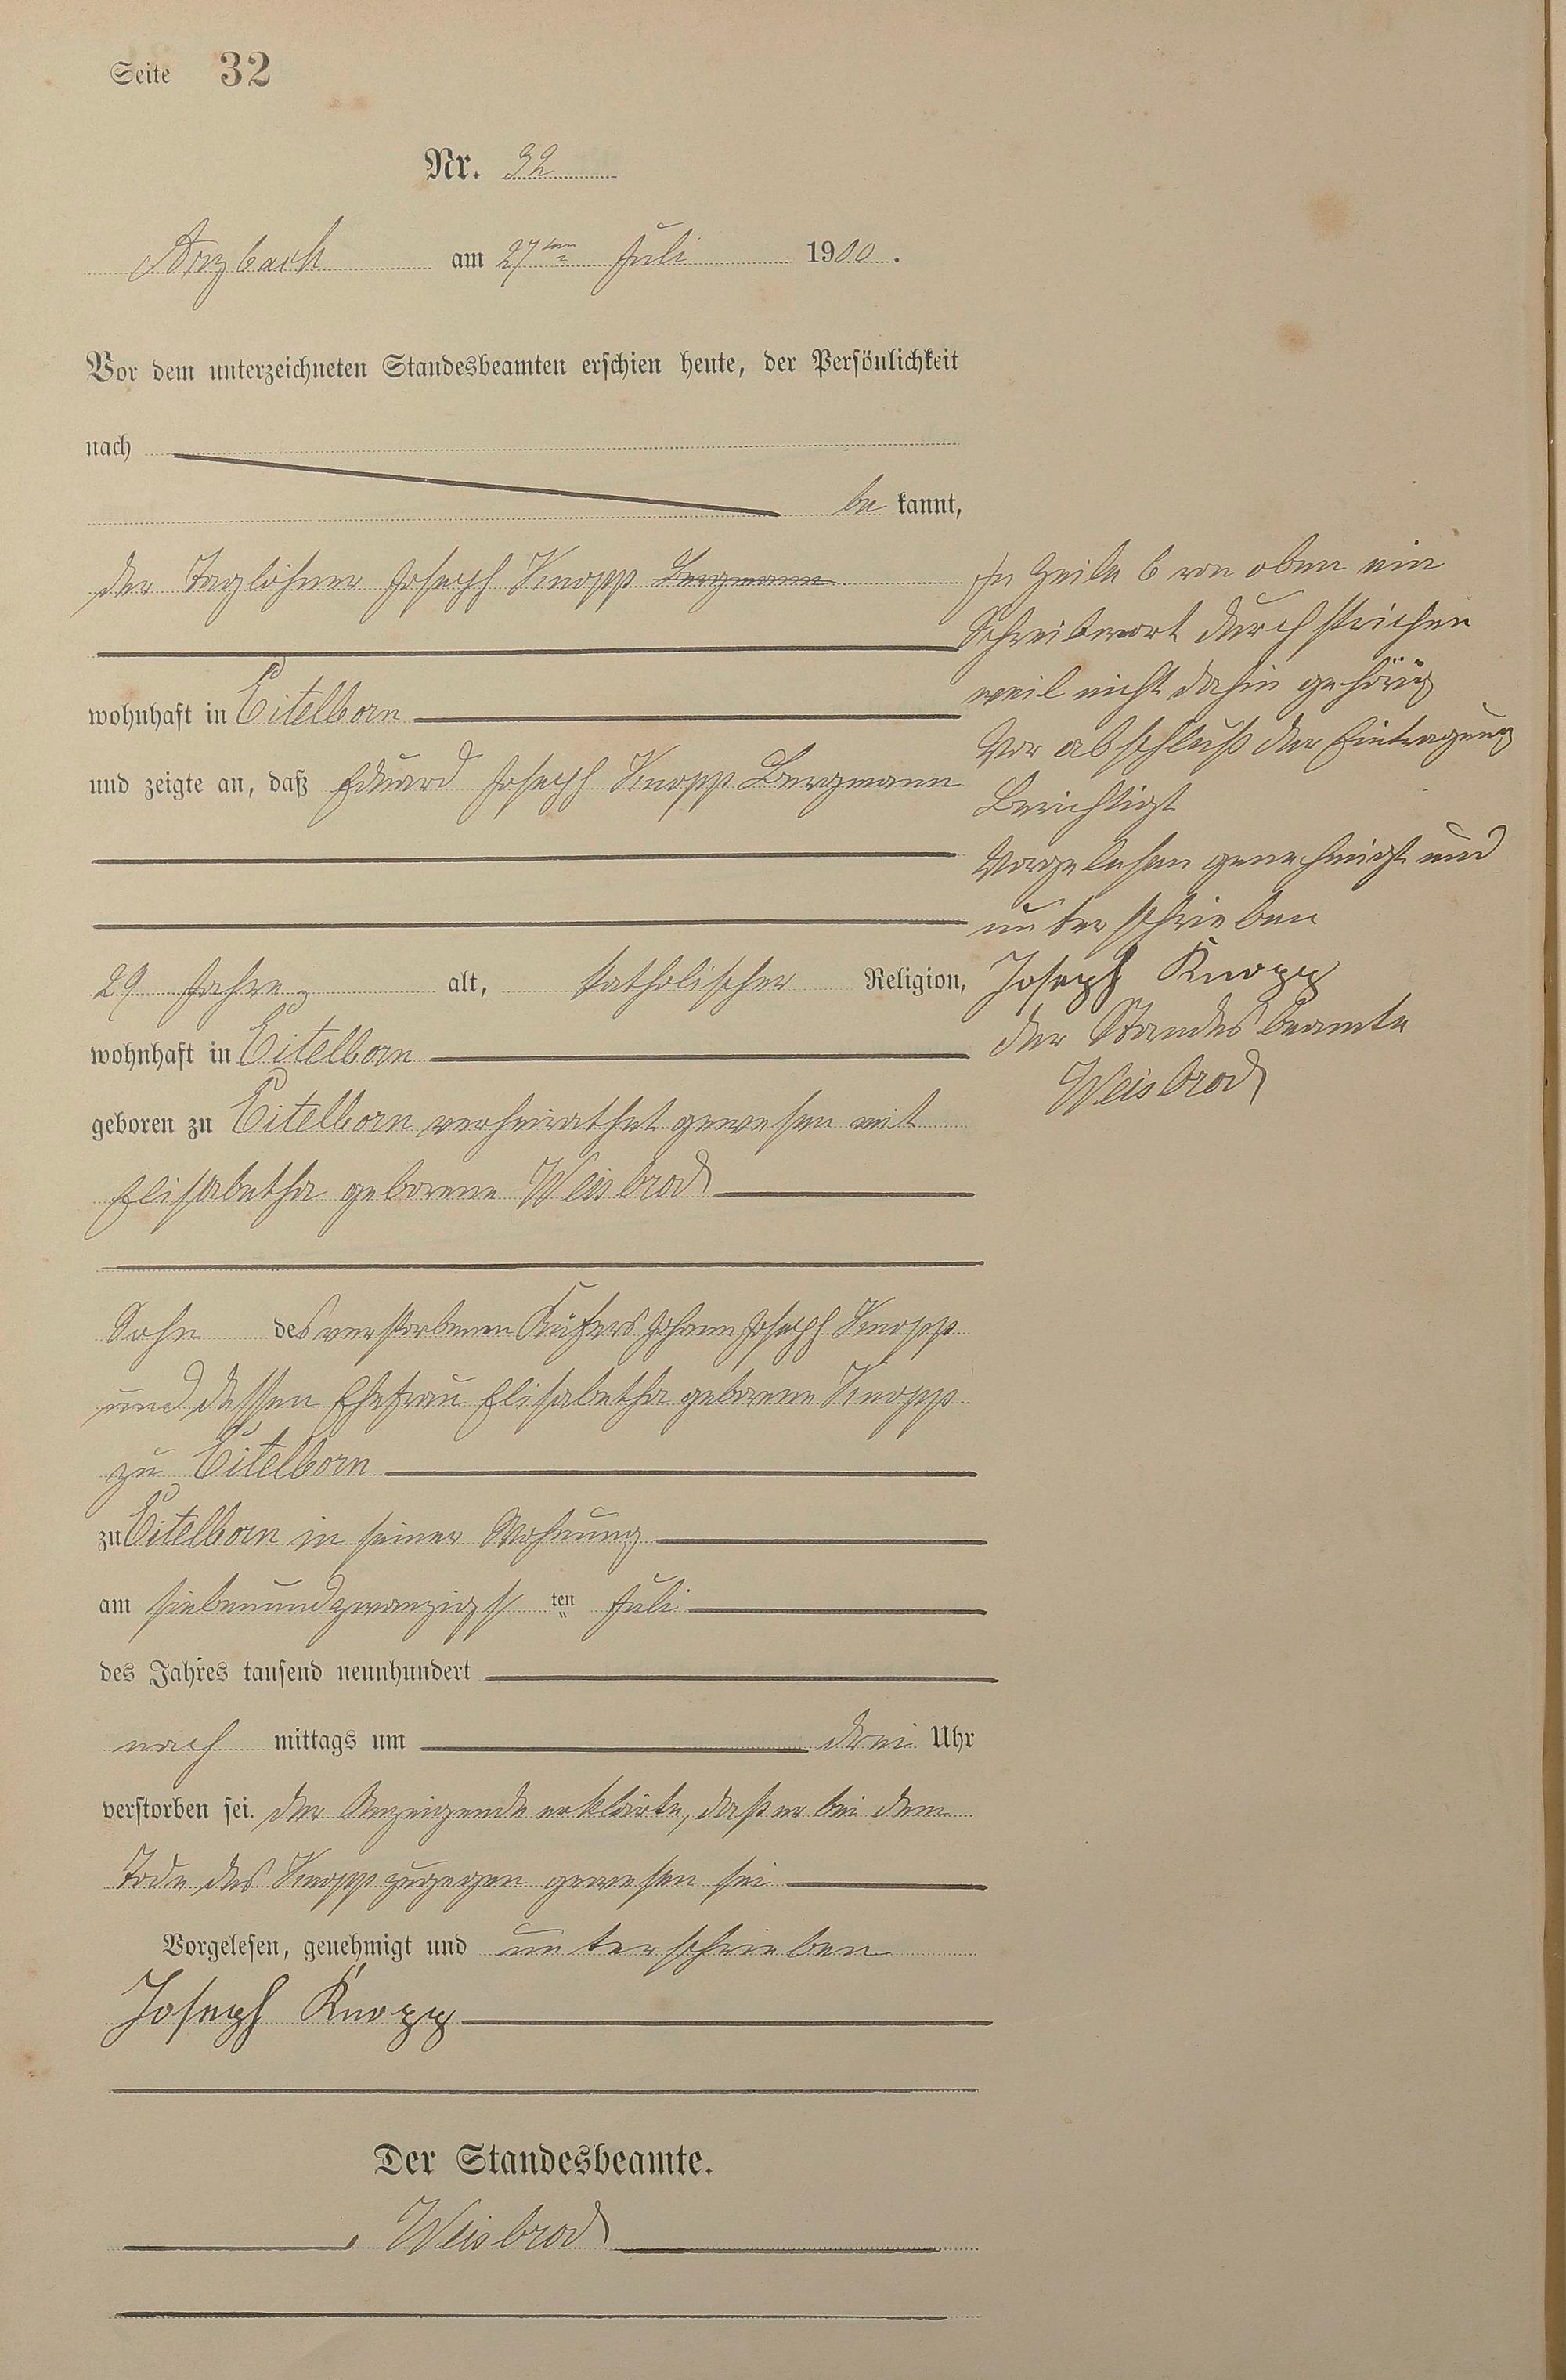 Seite 32
Nr. 32
Arzbach am 27ten Juli 1900.
Vor dem unterzeichneten Standesbeamten erschien heute, der Persönlichkeit
nach
be kannt,
der Taglöhner Joseph Knopp Bergmann
wohnhaft in Eitelborn
und zeigte an, daß Eduard Joseph Knopp Bergmann
29 Jahre alt, katholischer Religion,
wohnhaft in Eitelborn
geboren zu Eitelborn verheirathet gewesen mit
Elisabetha geborene Weisbrod
Sohn des verstorbenen Küfers Johann Joseph Knopp
und dessen Ehefrau Elisabetha geborene Knopp
zu Eitelborn
zu Eitelborn in seiner Wohnung
am siebenundzwanzigsten Juli
des Jahres tausend neunhundert
nach mittags um drei Uhr
verstorben sei. Der Anzeigende erklärte, daß er bei dem
Tode des Knopp zugegen gewesen sei
Vorgelesen, genehmigt und unterschrieben
Joseph Knopp
Der Standesbeamte.
Weisbrod
In Zeile 6 von oben ein
Schreibwort durchstrichen
weil nicht dahin gehörig
Vor abschluß der Eintragung
Berichtigt
Vorgelesen genehmigt und
unterschrieben
Joseph Knopp
Der Standesbeamte
Weisbrod